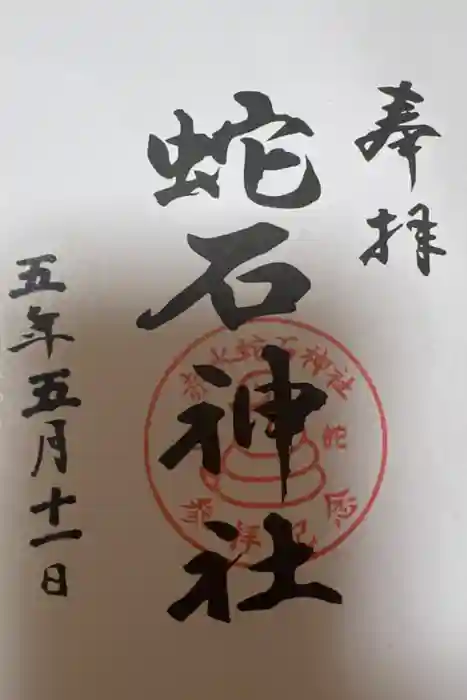 奉拝
蛇石神社
五年五月十一日
蛇石神社
蛇
参拝記念